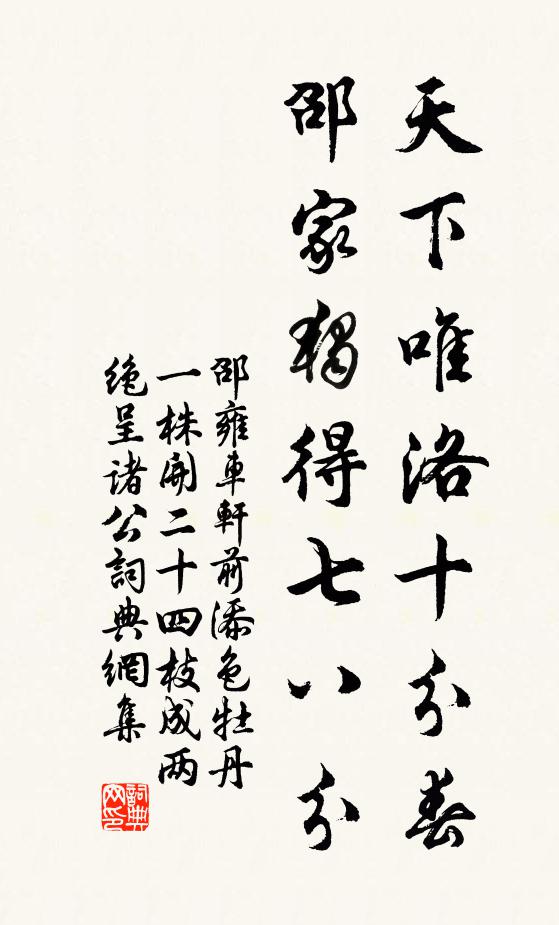 天下唯洛十分春
邵家獨得七八分
邵雍車軒前添色牡丹
一株開二十四枝成两
绝呈诸公詞典網集
詞典网印